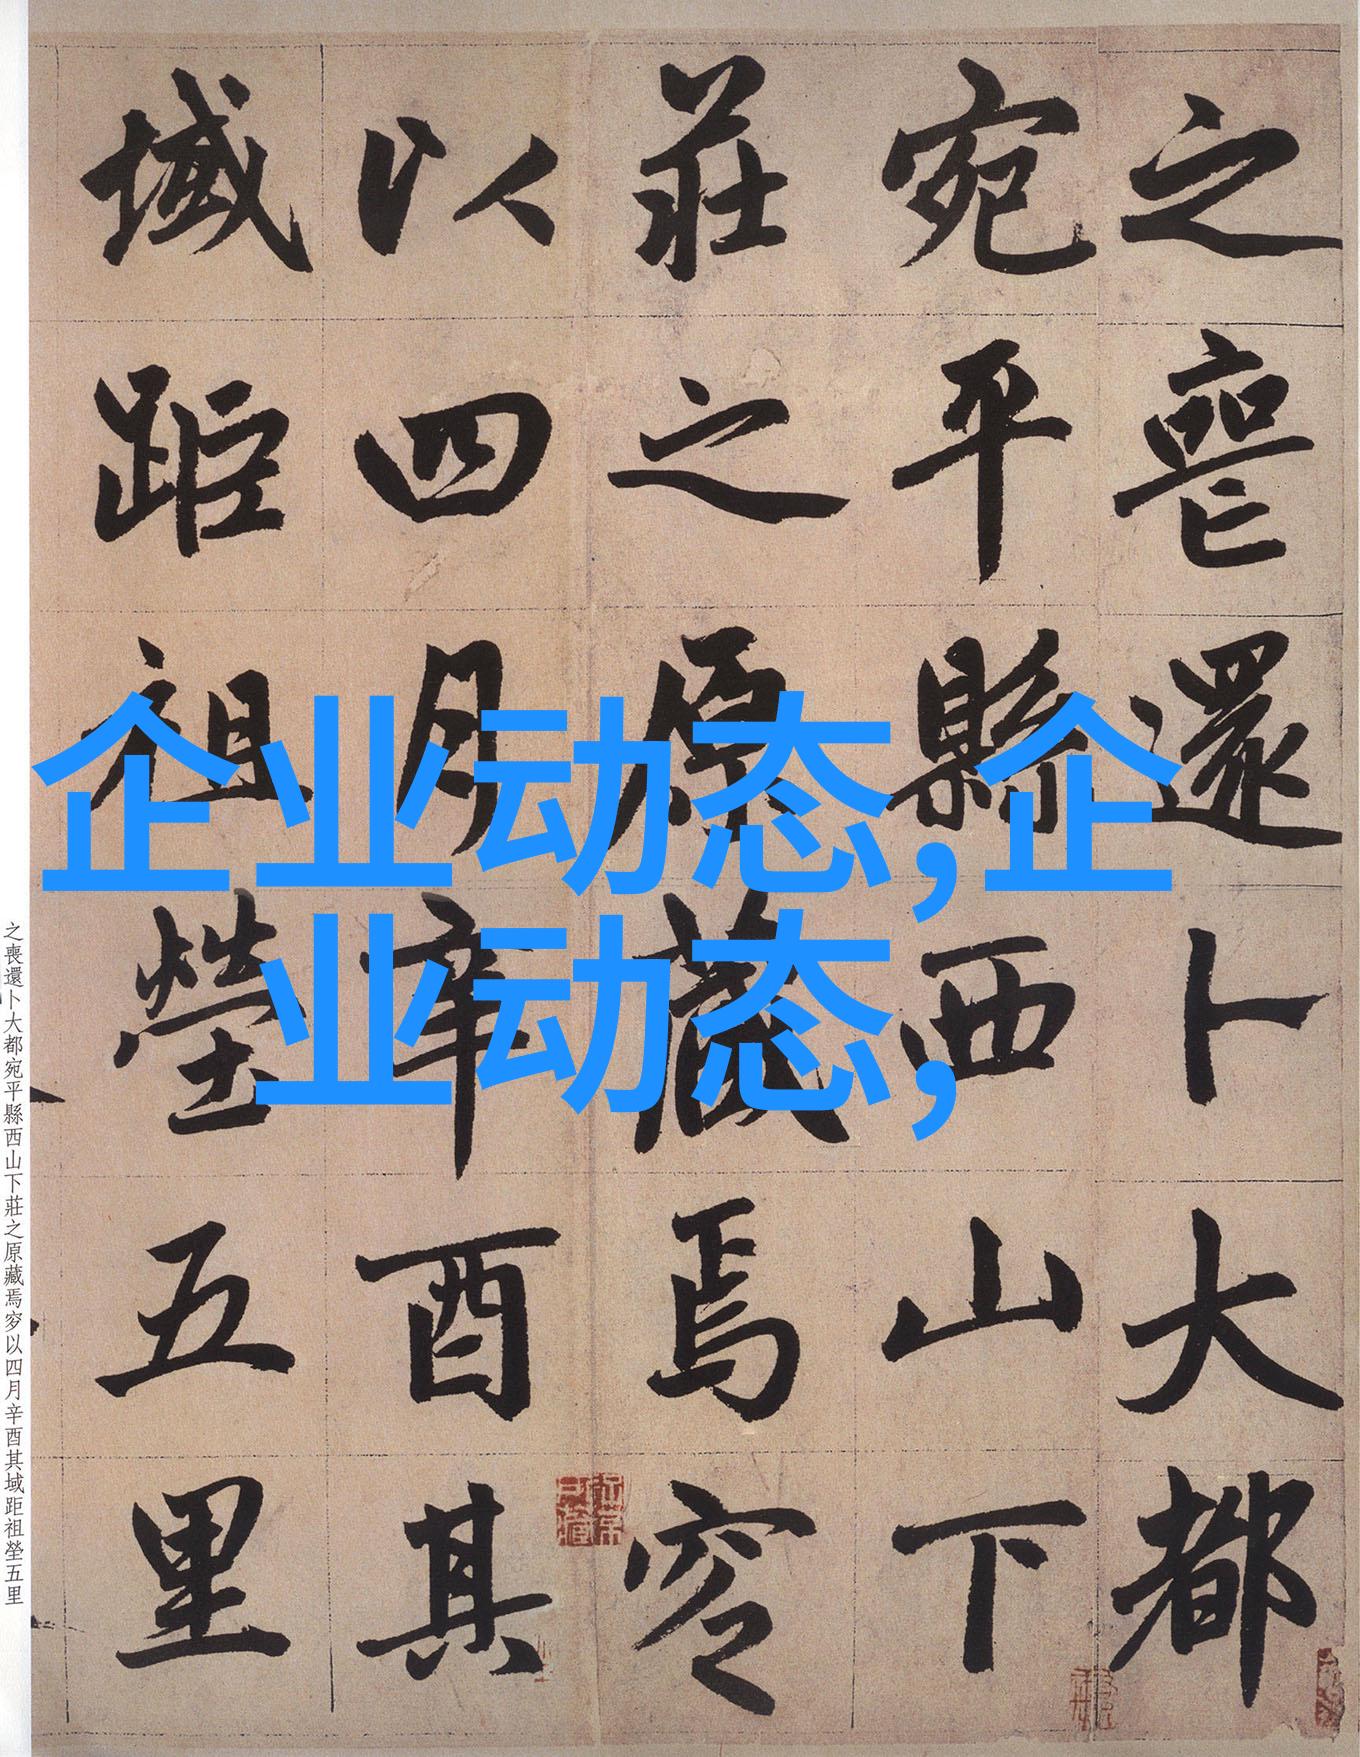 之喪還卜大都
宛平縣西山下
莊之原藏焉穸
以四月辛酉其
域距祖塋五里
企业动态,企
业动态,
之喪還卜大都宛平縣西山下莊之原藏焉穸以四月辛酉其域距祖塋五里